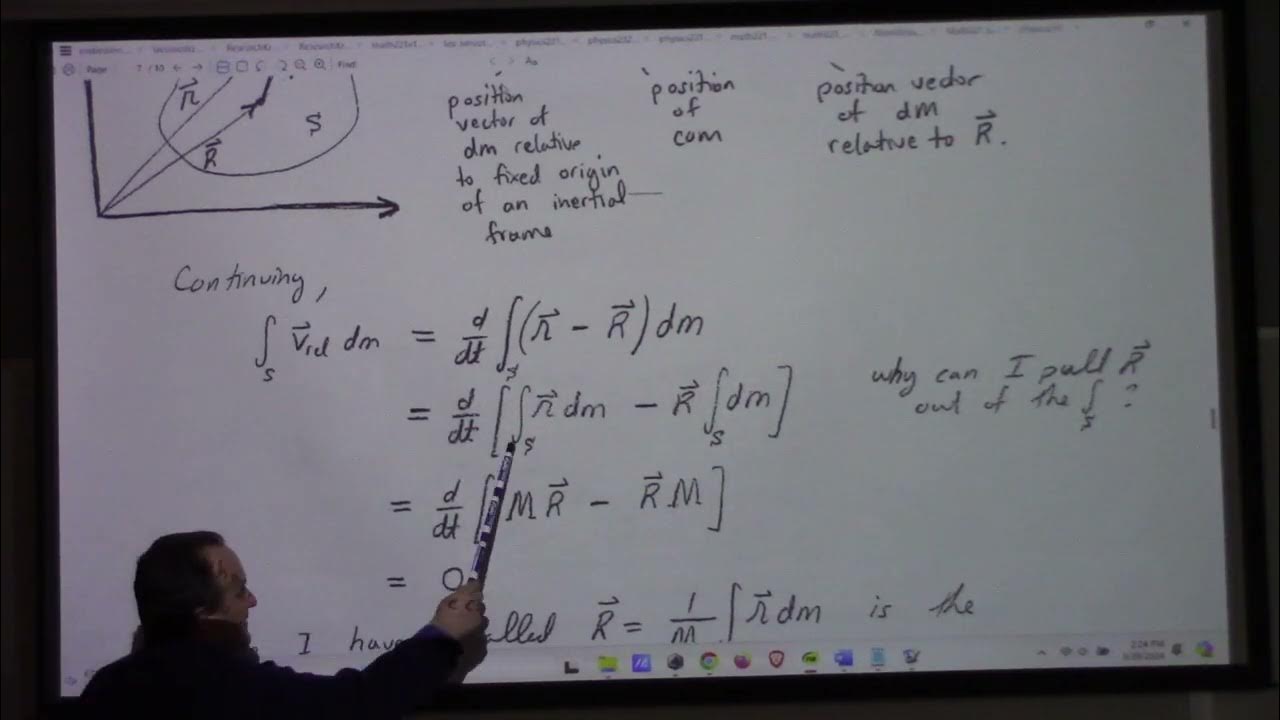 Page 7 / 10 Find
r⃗
R⃗
S
position
vector of
dm relative
to fixed origin
of an inertial
frame
position
of
com
position vector
of dm
relative to R⃗.
Continuing,
∫_S v⃗_rel dm = d/dt ∫_S (r⃗ − R⃗) dm
= d/dt [∫_S r⃗ dm − R⃗ ∫_S dm]
why can I pull R⃗
out of the ∫_S ?
= d/dt [M R⃗ − R⃗ M]
= 0
I have R⃗ = 1/M ∫ r⃗ dm is the
2:24 PM